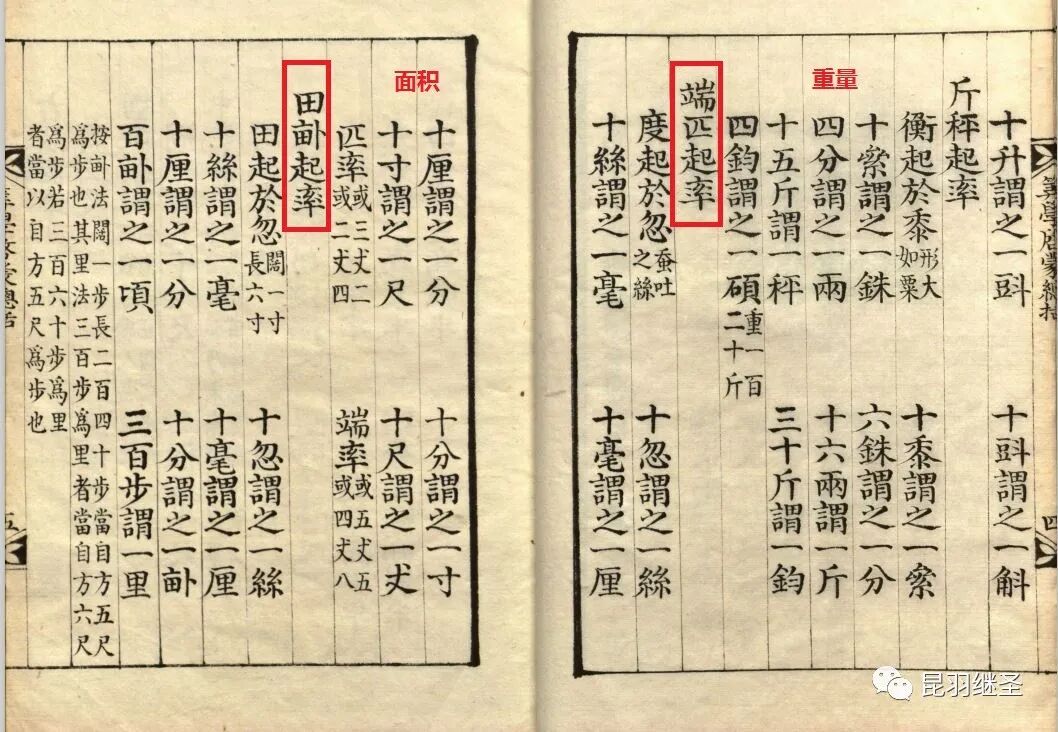 重量
十升謂之一㪷
十㪷謂之一斛
斤秤起率
衡起於黍形大如粟
十黍謂之一絫
十絫謂之一銖
六銖謂之一分
四分謂之一兩
十六兩謂一斤
十五斤謂一秤
三十斤謂一鈞
四鈞謂之一碩重一百二十斤
端匹起率
度起於忽蚕吐之絲
十忽謂之一絲
十絲謂之一毫
十毫謂之一厘
四
面积
十厘謂之一分
十分謂之一寸
十寸謂之一尺
十尺謂之一丈
匹率或三丈二或二丈四
端率或五丈五或四丈八
田畝起率
田起於忽闊一寸長六寸
十忽謂之一絲
十絲謂之一毫
十毫謂之一厘
十厘謂之一分
十分謂之一畝
百畝謂之一頃
三百步謂一里
按畝法闊一步長二百四十步當自方五尺
爲步也其里法三百步爲里者當自方六尺
爲步若三百六十步爲里
者當以自方五尺爲步也
五
昆羽继圣